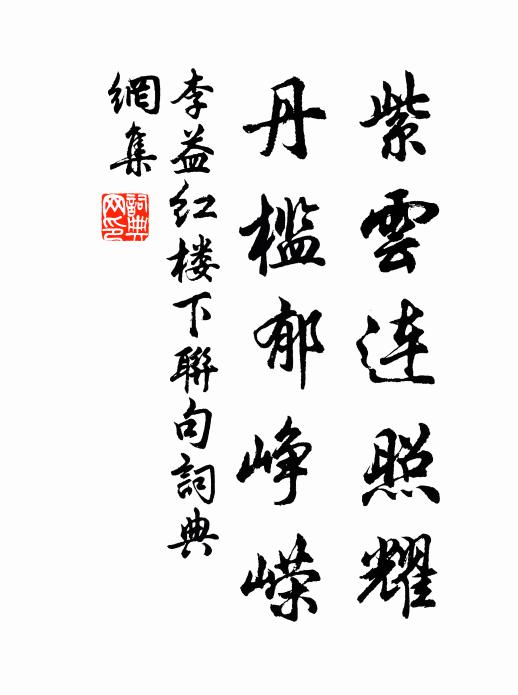 紫雲连照耀
丹槛郁峥嵘
李益红楼下聯句詞典
網集
詞典
网印